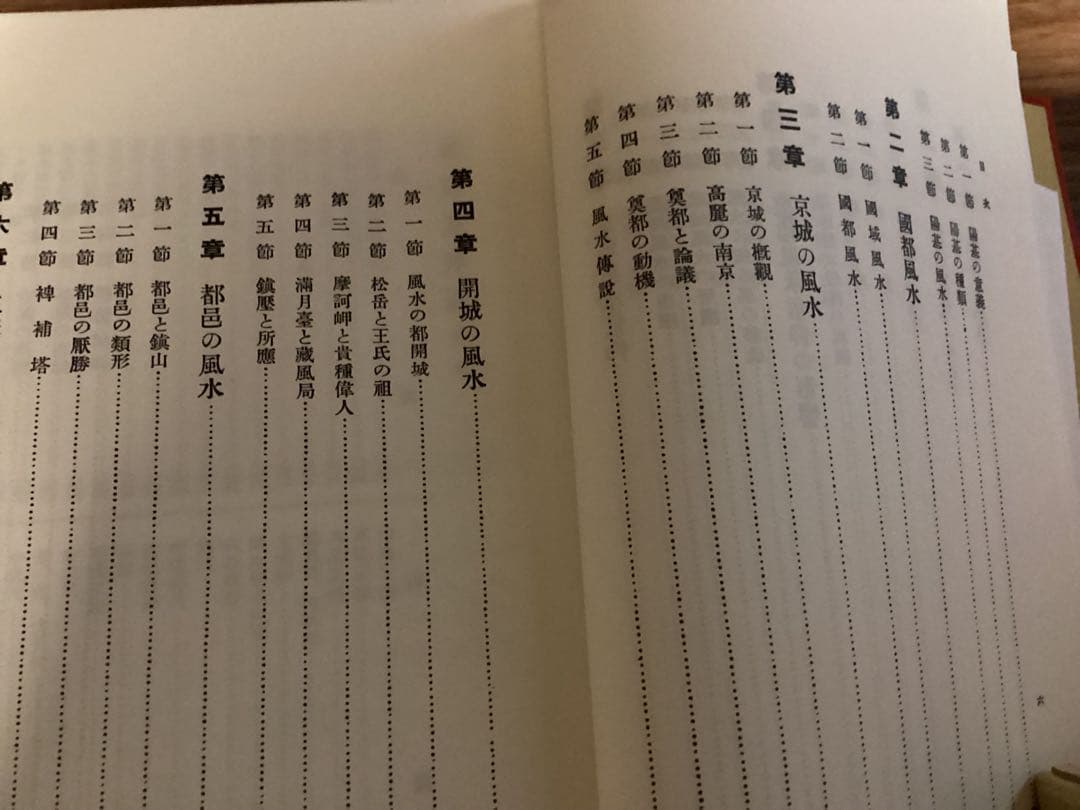 目次
第一節 陽基の意義
第二節 陽基の種類
第三節 陽基の風水
第二章 國都風水
第一節 國域風水
第二節 國都風水
第三章 京城の風水
第一節 京城の概觀
第二節 高麗の南京
第三節 奠都と論議
第四節 奠都の動機
第五節 風水傳說
六
第四章 開城の風水
第一節 風水の都開城
第二節 松岳と王氏の祖
第三節 摩訶岬と貴種偉人
第四節 滿月臺と藏風局
第五節 鎭壓と所應
第五章 都邑の風水
第一節 都邑と鎭山
第二節 都邑の類形
第三節 都邑の厭勝
第四節 裨補塔
第六章